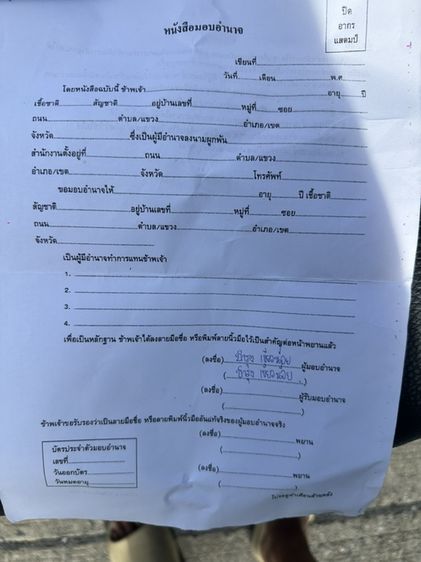 หนังสือมอบอำนาจ
ปิด
อากร
แสตมป์
เขียนที่
วันที่ เดือน พ.ศ.
โดยหนังสือฉบับนี้ ข้าพเจ้า อายุ ปี
เชื้อชาติ สัญชาติ อยู่บ้านเลขที่ หมู่ที่ ซอย
ถนน ตำบล/แขวง อำเภอ/เขต
จังหวัด ซึ่งเป็นผู้มีอำนาจลงนามผูกพัน
สำนักงานตั้งอยู่ที่ ถนน ตำบล/แขวง
อำเภอ/เขต จังหวัด โทรศัพท์
ขอมอบอำนาจให้ อายุ ปี เชื้อชาติ
สัญชาติ อยู่บ้านเลขที่ หมู่ที่ ซอย
ถนน ตำบล/แขวง อำเภอ/เขต
จังหวัด
เป็นผู้มีอำนาจทำการแทนข้าพเจ้า
1.
2.
3.
4.
เพื่อเป็นหลักฐาน ข้าพเจ้าได้ลงลายมือชื่อ หรือพิมพ์ลายนิ้วมือไว้เป็นสำคัญต่อหน้าพยานแล้ว
(ลงชื่อ) ผู้มอบอำนาจ
( )
(ลงชื่อ) ผู้รับมอบอำนาจ
( )
ข้าพเจ้าขอรับรองว่าเป็นลายมือชื่อ หรือลายพิมพ์นิ้วมืออันแท้จริงของผู้มอบอำนาจจริง
(ลงชื่อ) พยาน
( )
(ลงชื่อ) พยาน
( )
บัตรประจำตัวมอบอำนาจ
เลขที่
วันออกบัตร
วันหมดอายุ